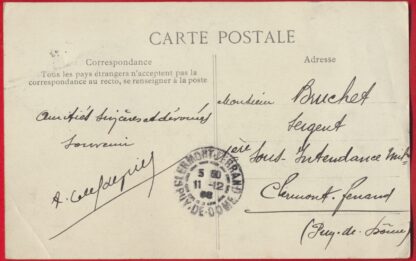 CARTE POSTALE
Correspondance
Tous les pays étrangers n'acceptent pas la
correspondance au recto, se renseigner à la poste
Adresse
Amitiés sincères et dévouées
Souvenir
Monsieur Bruchet
Sergent
Sous-Intendance
Clermont-Ferrand
(Puy-de-Dôme)
CLERMONT-FERRAND
11-12
PUY-DE-DOME